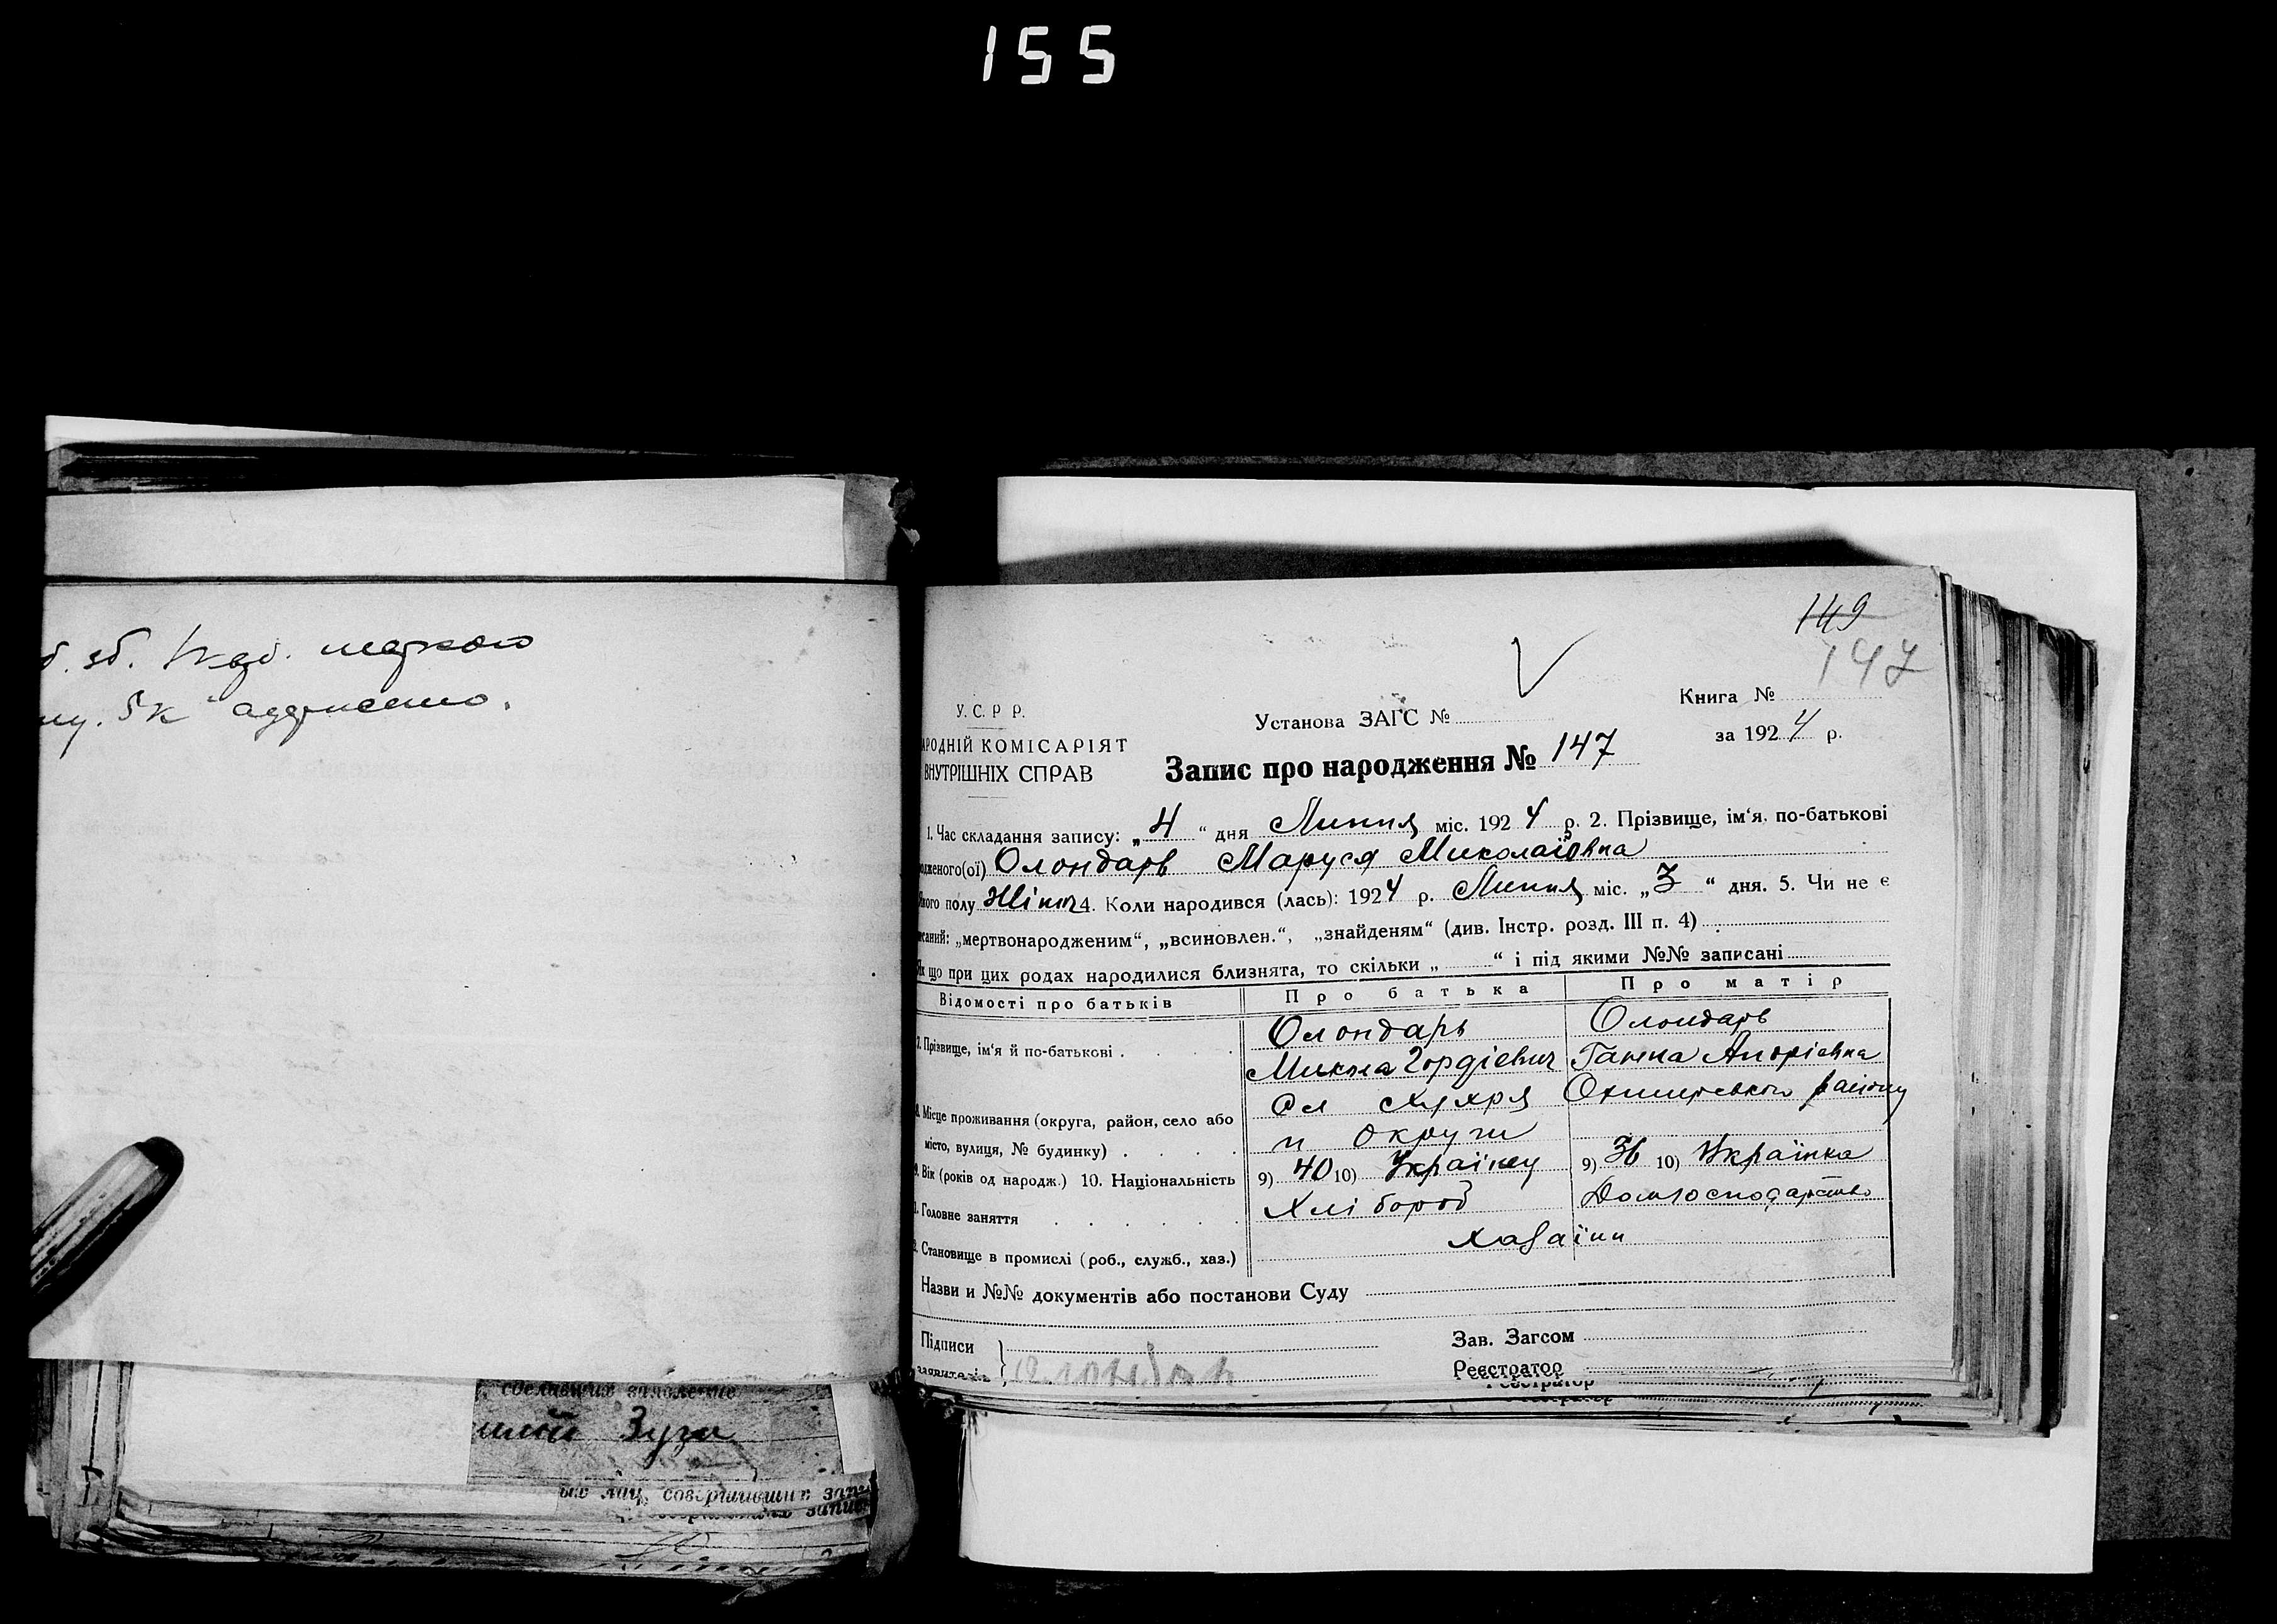 155
зб.
5к
149
147
У. С. Р. Р.
Установа ЗАГС №
Книга №
АРОДНІЙ КОМІСАРІЯТ
за 1924 р.
ВНУТРІШНІХ СПРАВ
Запис про народження № 147
1. Час складання запису: „4“ дня Липня міс. 1924 р. 2. Прізвище, ім‘я, по-батькові
дженого(ої) Олондарь Маруся Миколаївна
полу Жіноч 4. Коли народився (лась): 1924 р. Липня міс. „3“ дня. 5. Чи не є
саний: „мертвонародженим“, „всиновлен.“, „знайденям“ (див. Інстр. розд. III п. 4)
Як що при цих родах народилися близнята, то скільки „ “ і під якими №№ записані
Відомості про батьків Про батька Про матір
7. Прізвище, ім‘я й по-батькові Олондарь Олондарь
Микола Гордієвич Ганна Андріевна
8. Місце проживання (округа, район, село або Сл Хухря Охтирського району
місто, вулиця, № будинку) и Округи
9. Вік (років од народж.) 10. Національність 9) 40 10) Українец 9) 36 10) Українка
11. Головне заняття Хлібороб Домгосподарство
Становище в промислі (роб., служб., хаз.) хазаіни
Назви и №№ документів або постанови Суду
Підписи Зав. Загсом
Реєстратор
Реєстратор
сделавших заявление
Зуги
лиц, совершивших запи